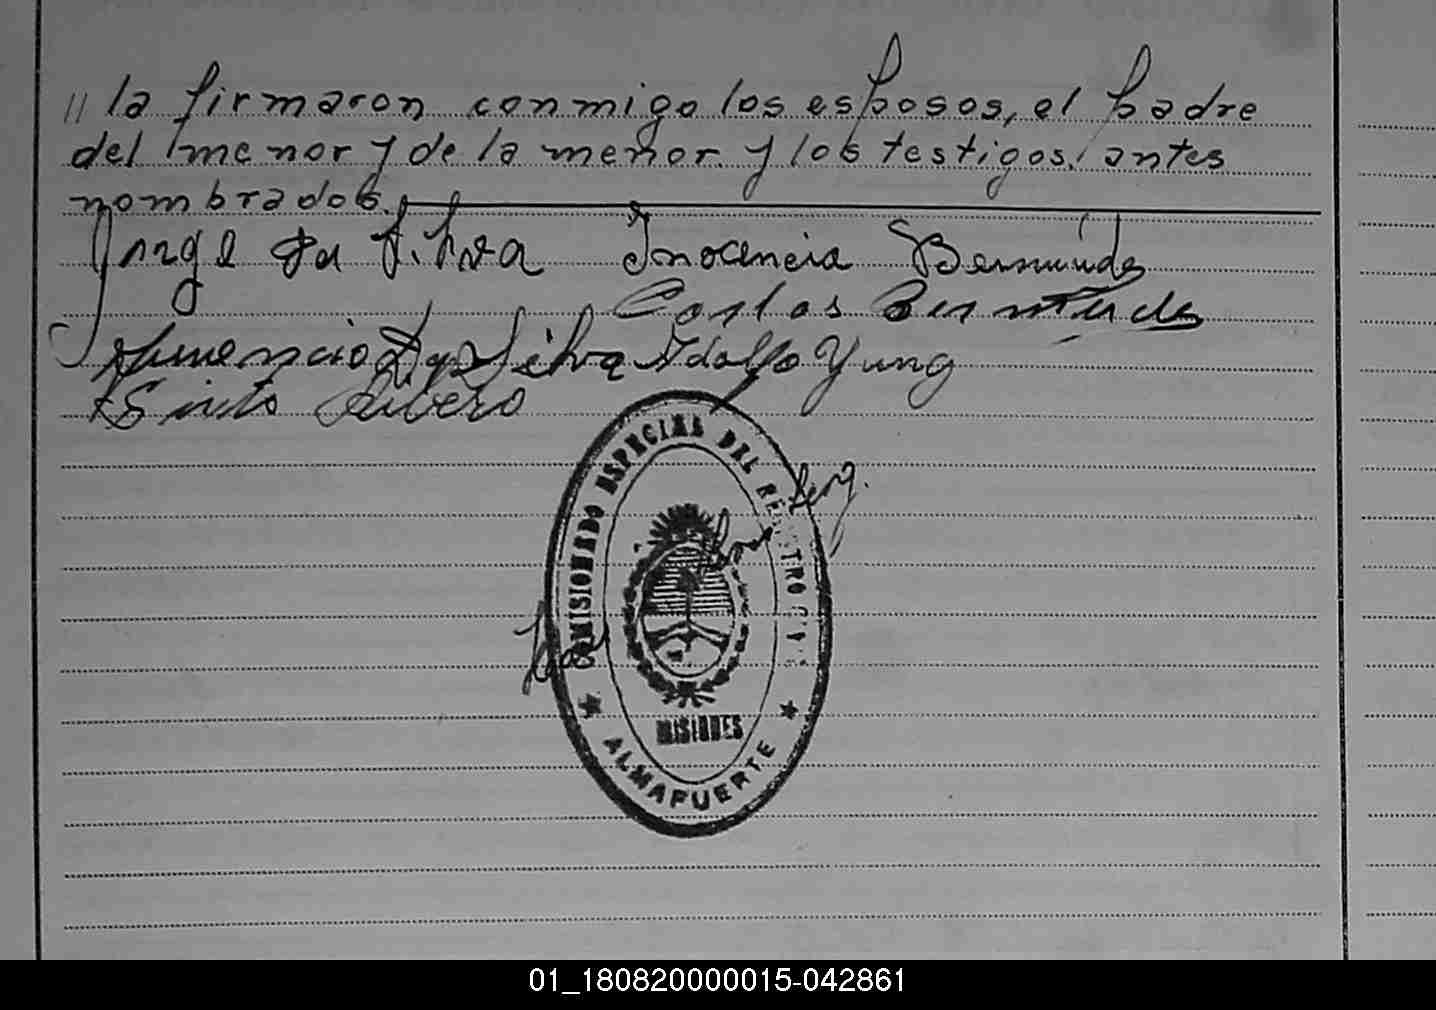 // la firmaron conmigo los esposos, el padre
del menor y de la menor y los testigos antes
nombrados.
Jorge da Silva Inocencia Bermudes
Carlos Bermudes
Da Silva Adolfo Yung
Ribero
COMISIONADO ESPECIAL DEL REGISTRO CIVIL
MISIONES
★ ALMAFUERTE ★
01_180820000015-042861